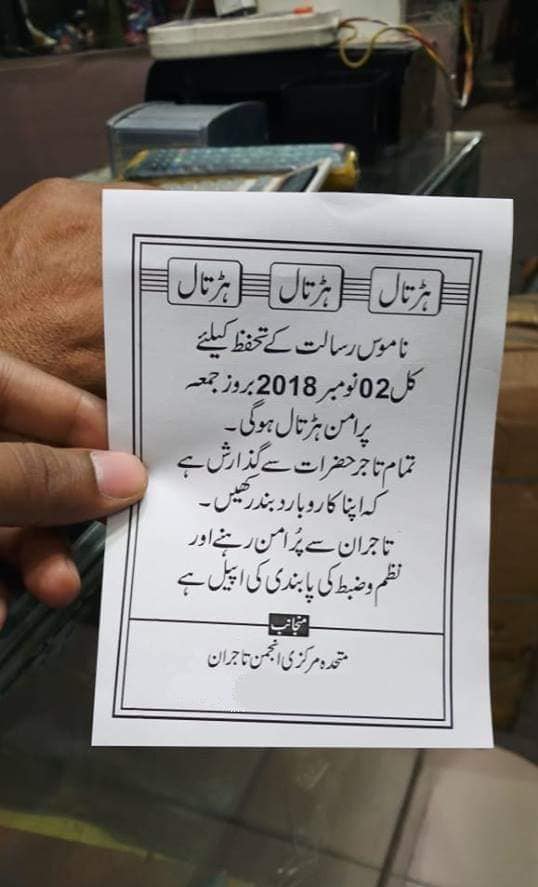 ہڑتال ہڑتال ہڑتال
ناموس رسالت کے تحفظ کیلئے
کل 02 نومبر 2018 بروز جمعہ
پر امن ہڑتال ہوگی۔
تمام تاجر حضرات سے گذارش ہے
کہ اپنا کاروبار بند رکھیں۔
تاجران سے پُرامن رہنے اور
نظم و ضبط کی پابندی کی اپیل ہے
منجانب
متحدہ مرکزی انجمن تاجران